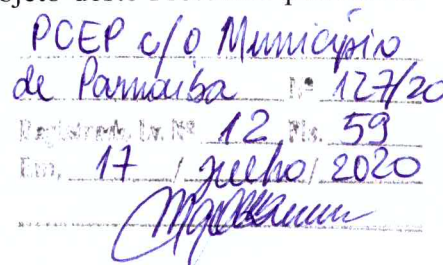 jeto deste
PCEP c/o Município
de Parnaíba Nº 127/20
Registrado, Lv. Nº 12 Fls. 59
Em, 17 / julho / 2020